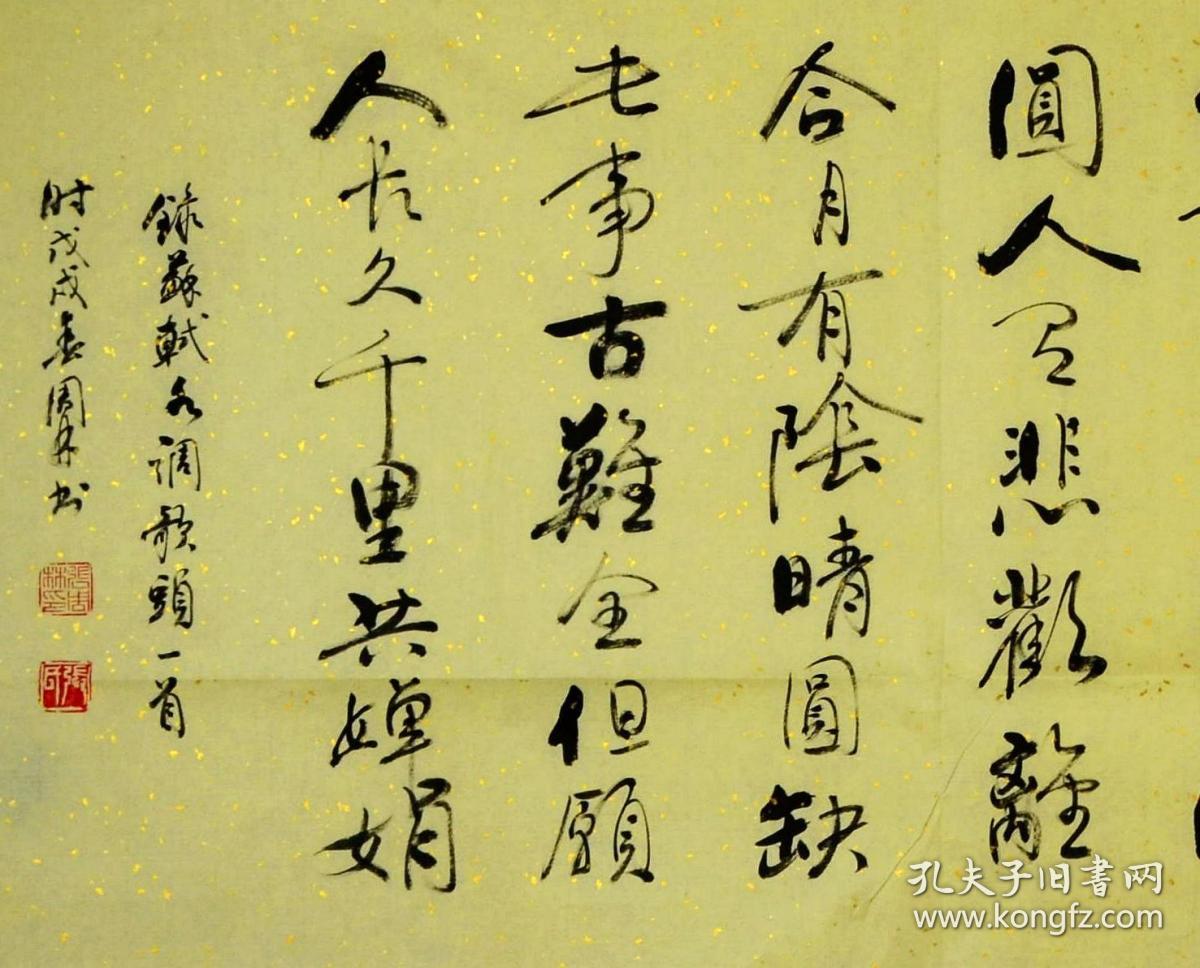 圓人有悲歡離
合月有陰晴圓缺
此事古難全但願
人長久千里共嬋娟
錄蘇軾水調歌頭一首
时戊戌春周林书
張周林印
張氏
孔夫子旧書网
www.kongfz.com